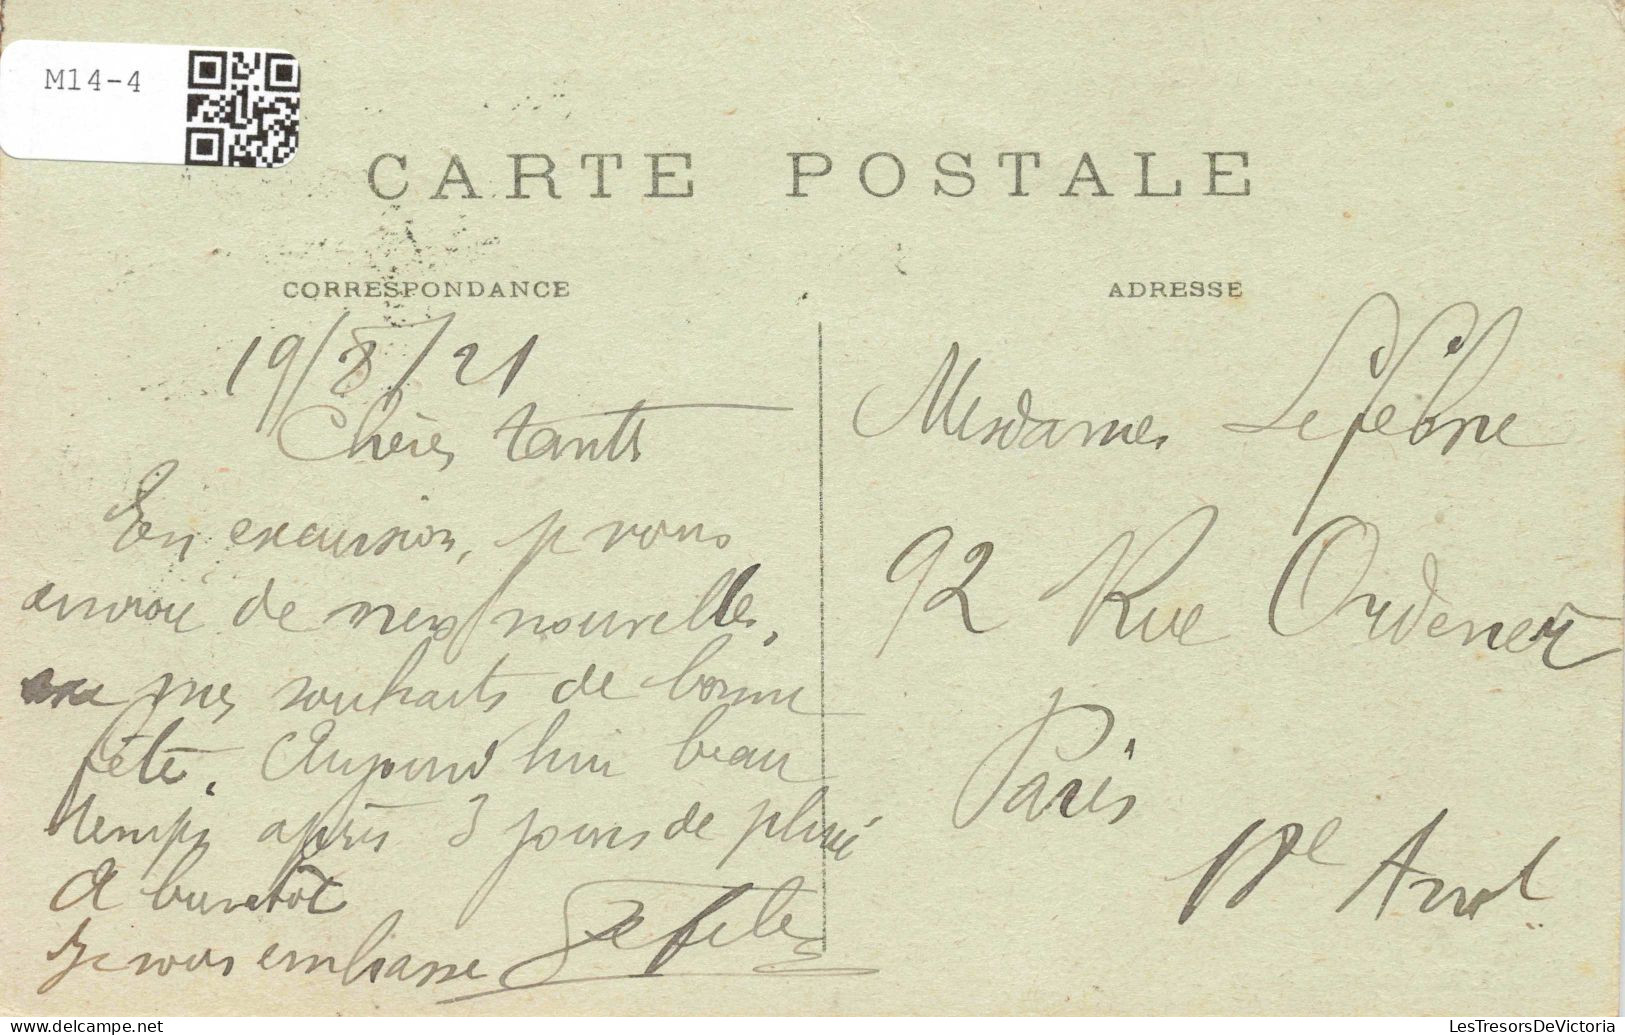 M14-4
CARTE POSTALE
CORRESPONDANCE
ADRESSE
19/8/21
Chères tantes
En excursion, je vous
envoie de mes nouvelles,
mes souhaits de bonne
fête. Aujourd'hui beau
temps après 3 jours de pluie
A bientôt
Je vous embrasse
Mesdames Lefebvre
92 Rue Ordener
Paris
18e Arrd.
www.delcampe.net
LesTresorsDeVictoria